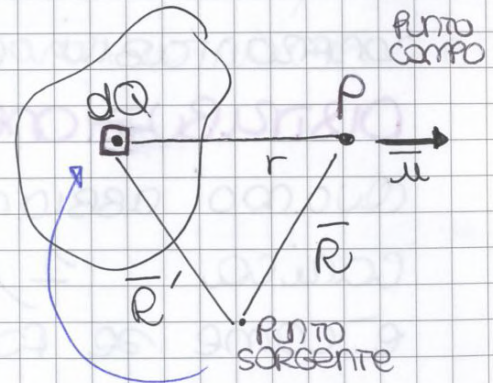 PUNTO
CAMPO
dQ
P
r
ū
R̅'
R̅
PUNTO
SORGENTE